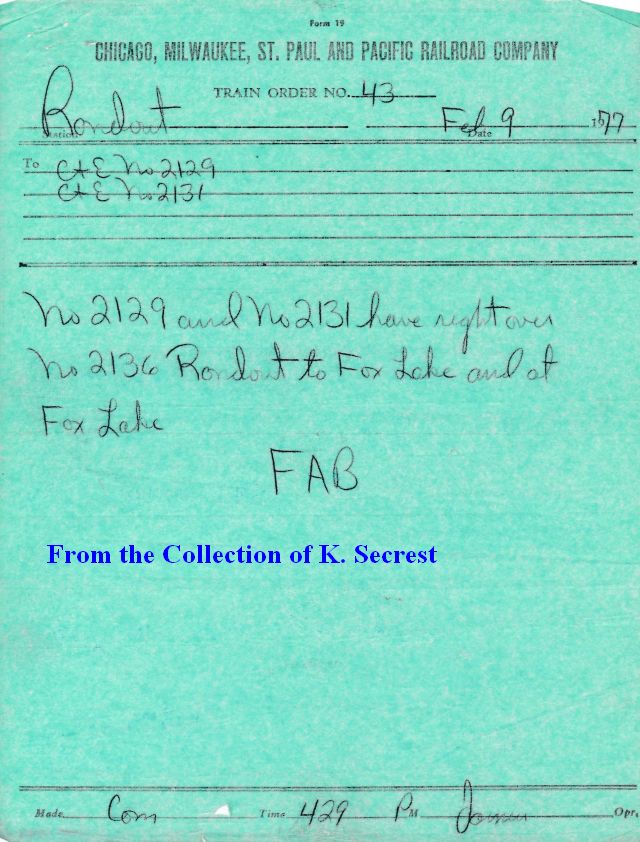 Form 19
CHICAGO, MILWAUKEE, ST. PAUL AND PACIFIC RAILROAD COMPANY
TRAIN ORDER NO. 43
Rondout Station Feb 9 Date 1977
To C&E No 2129
C&E No 2131
No 2129 and No 2131 have right over
No 2136 Rondout to Fox Lake and at
Fox Lake
FAB
From the Collection of K. Secrest
Made Com Time 429 PM Opr.